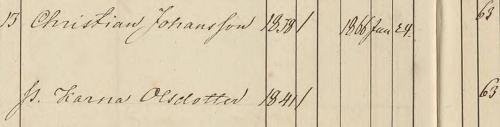 13 Christian Johansson 1838/ 1866 Jan 24. 63
p. Karna Olsdotter 1841/ 63